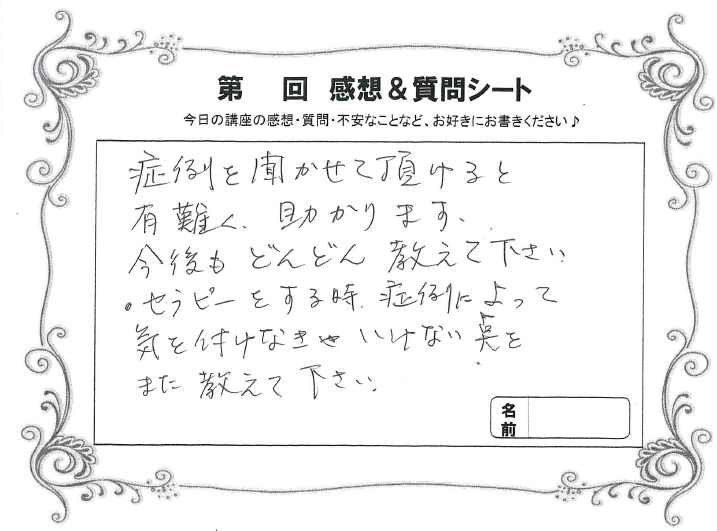 第　回 感想＆質問シート
今日の講座の感想・質問・不安なことなど、お好きにお書きください♪
症例を聞かせて頂けると
有難く、助かります、
今後も どんどん 教えて下さい
・セラピーをする時、症例によって
気を付けなきゃいけない点を
また 教えて 下さい、
名前